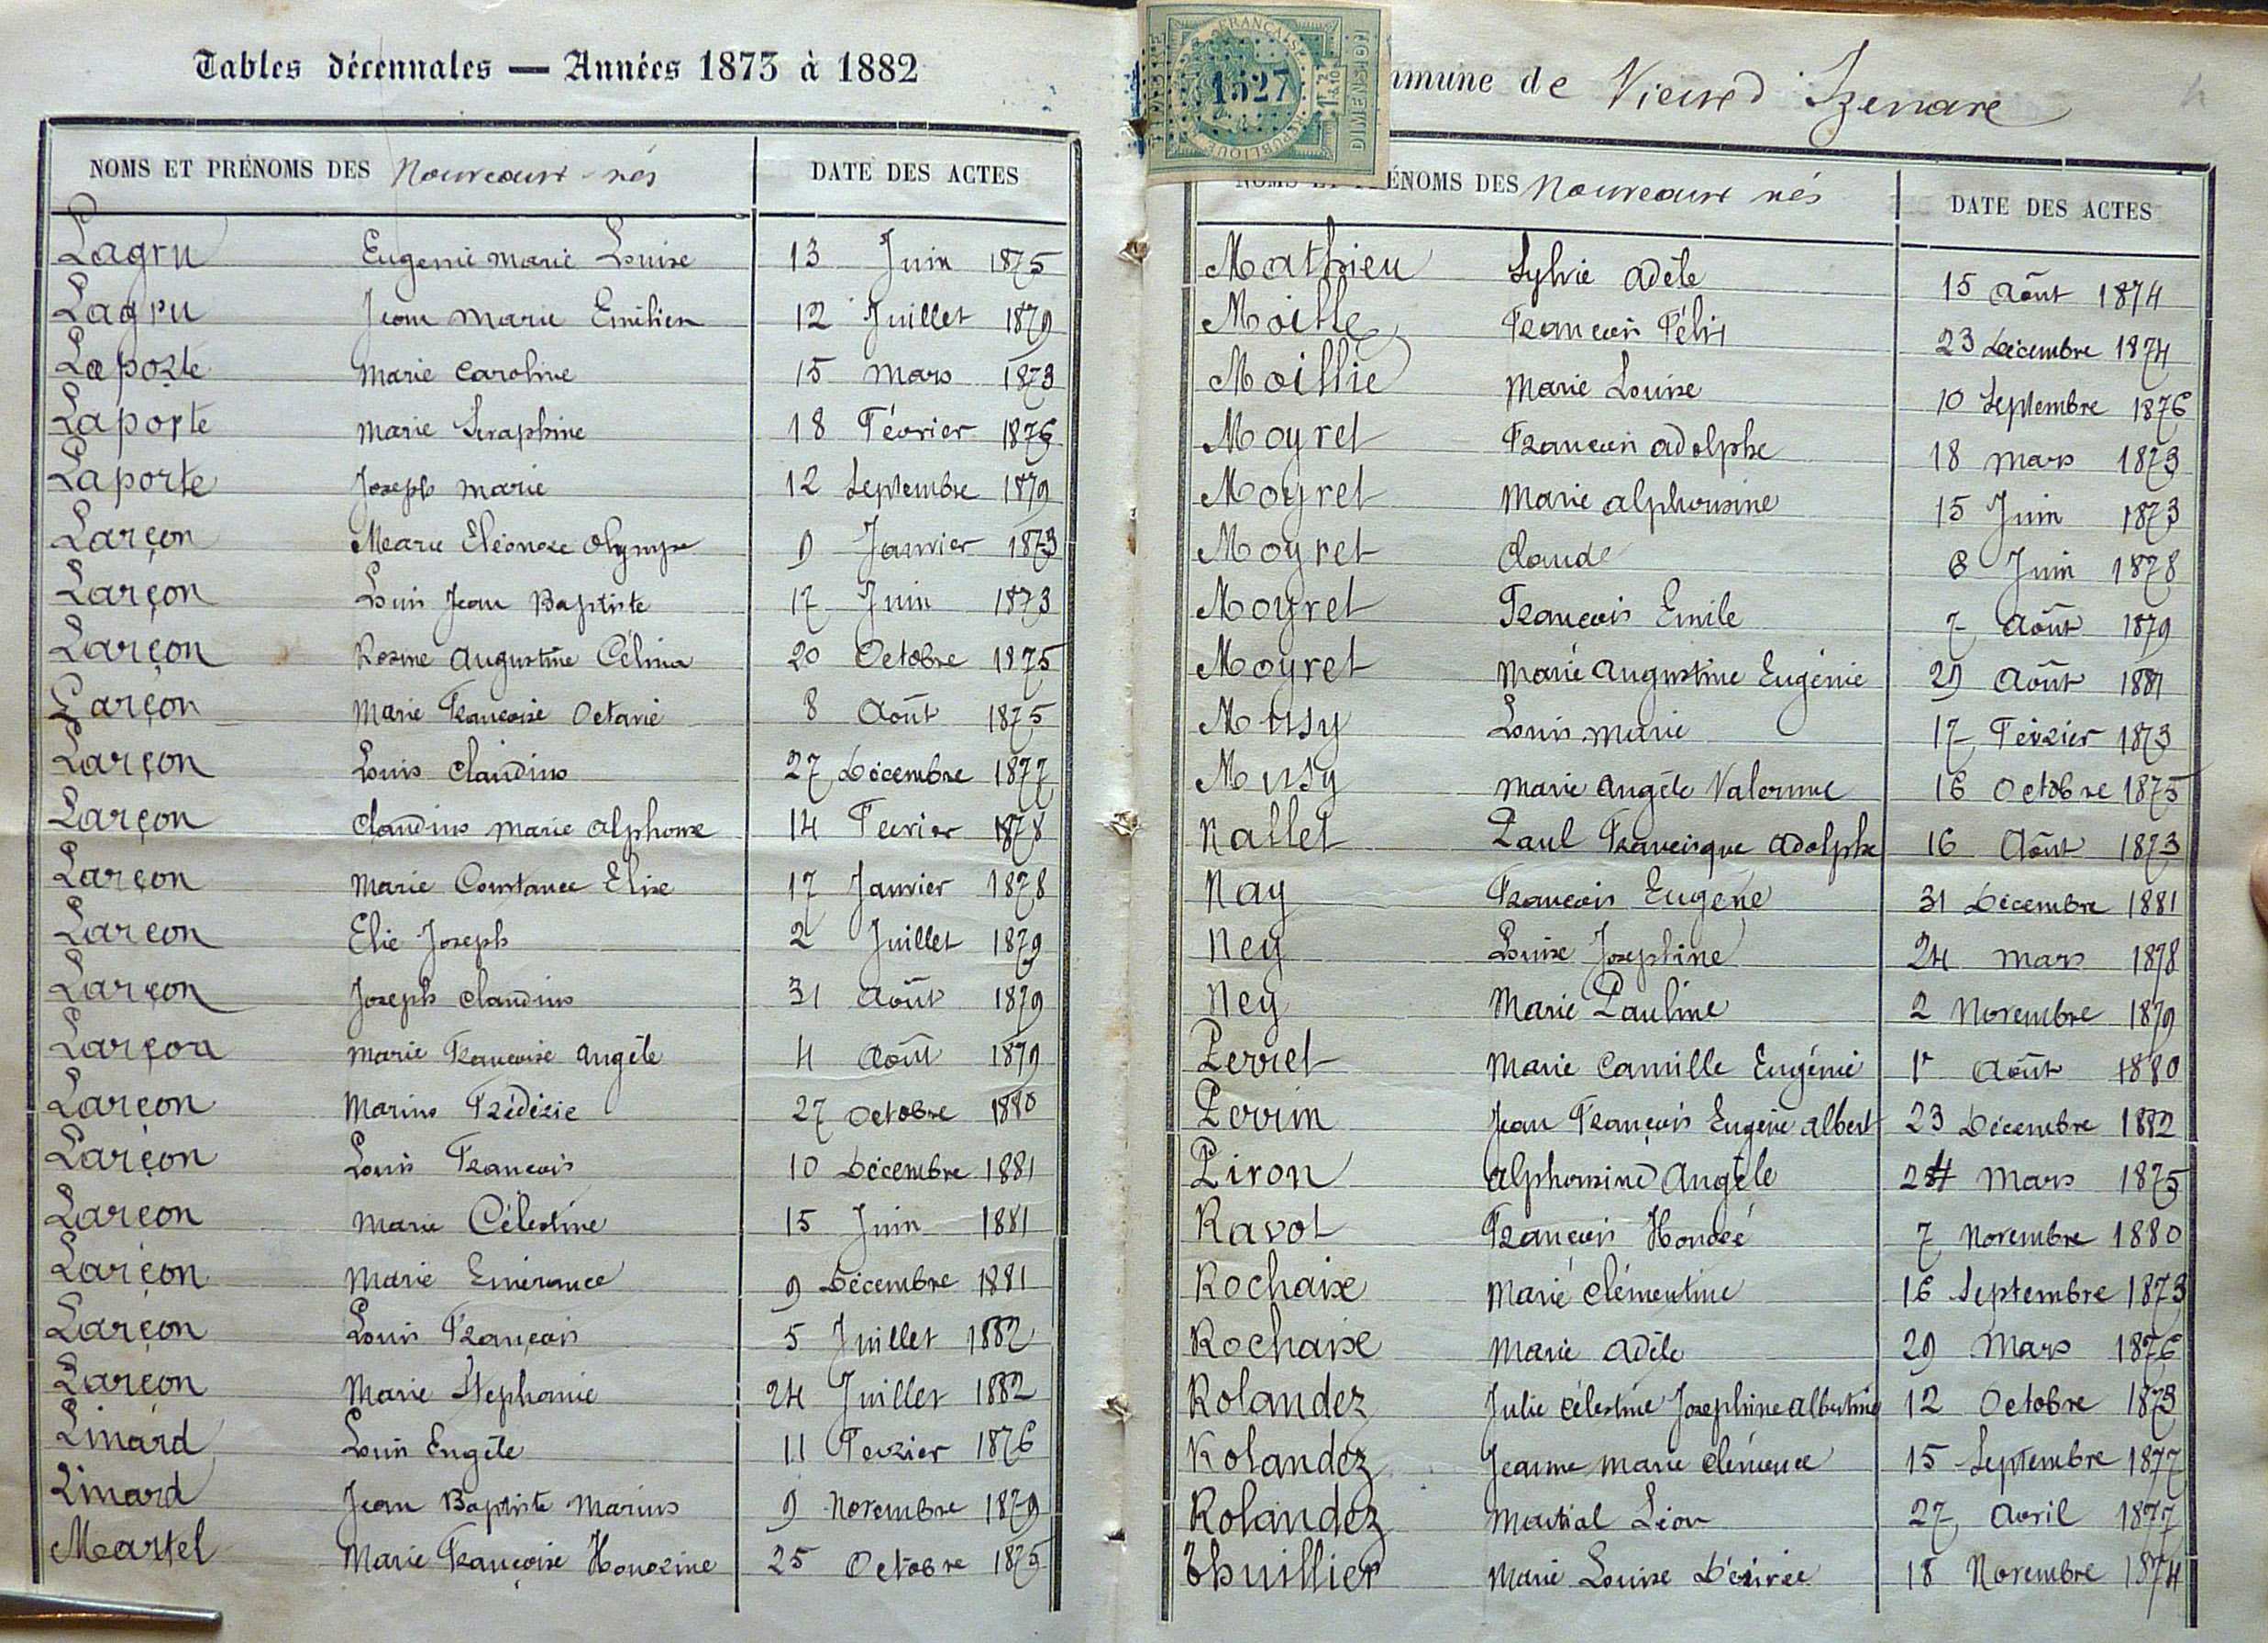 Tables décennales — Années 1873 à 1882
NOMS ET PRÉNOMS DES Nouveaux nés DATE DES ACTES
Lagru Eugenie Marie Louise 13 Juin 1875
Lagru Jean Marie Emilien 12 Juillet 1879
Laporte Marie Caroline 15 Mars 1873
Laporte Marie Seraphine 18 Février 1876
Laporte Joseph Marie 12 Septembre 1879
Larçon Marie Eléonore Olympe 9 Janvier 1873
Larçon Louis Jean Baptiste 17 Juin 1873
Larçon Rosine Augustine Célina 20 Octobre 1875
Larçon Marie Françoise Octavie 8 Août 1875
Larçon Louis Claudius 27 Décembre 1877
Larçon Claudius Marie Alphonse 14 Fevrier 1878
Larçon Marie Constance Elise 17 Janvier 1878
Larcon Elie Joseph 2 Juillet 1879
Larçon Joseph Claudius 31 Août 1879
Larçon Marie Françoise Angèle 4 Août 1879
Larçon Marius Frédéric 27 Octobre 1880
Larçon Louis François 10 Décembre 1881
Larçon Marie Célestine 15 Juin 1881
Larçon Marie Emérance 9 Décembre 1881
Larçon Louis François 5 Juillet 1882
Larçon Marie Stephanie 24 Juillet 1882
Linard Louis Engèle 11 Fevrier 1876
Linard Jean Baptiste Marius 9 Novembre 1879
Martel Marie Françoise Honorine 25 Octobre 1875
1527
RÉPUBLIQUE FRANÇAISE
DIMENSION
mmune de Vieux d'Izenave
NOMS ET PRÉNOMS DES Nouveaux nés DATE DES ACTES
Mathieu Sylvie Adèle 15 Août 1874
Moille François Félix 23 Décembre 1874
Moillie Marie Louise 10 Septembre 1876
Moyret François Adolphe 18 Mars 1873
Moyret Marie Alphonsine 15 Juin 1873
Moyret Claude 6 Juin 1878
Moyret François Emile 7 Août 1879
Moyret Marie Augustine Eugénie 29 Août 1881
Musy Louis Marie 17 Février 1873
Musy Marie Angèle 16 Octobre 1875
Nallet Paul Francisque Adolphe 16 Août 1873
Nay François Eugène 31 Décembre 1881
Ney Louise Josephine 24 Mars 1878
Ney Marie Pauline 2 Novembre 1879
Perret Marie Camille Eugénie 1r Août 1880
Perrin Jean François Eugène Albert 23 Décembre 1882
Piron Alphonsine Angèle 24 Mars 1875
Ravot François Honoré 7 Novembre 1880
Rochaix Marie Clémentine 16 Septembre 1873
Rochaix Marie Adèle 29 Mars 1876
Rolandez Julie Célestine Josephine Albertine 12 Octobre 1873
Rolandez Jeanne Marie Clémence 15 Septembre 1877
Rolandez Martial Léon 27 Avril 1877
Thuillier Marie Louise Désirée 18 Novembre 1874